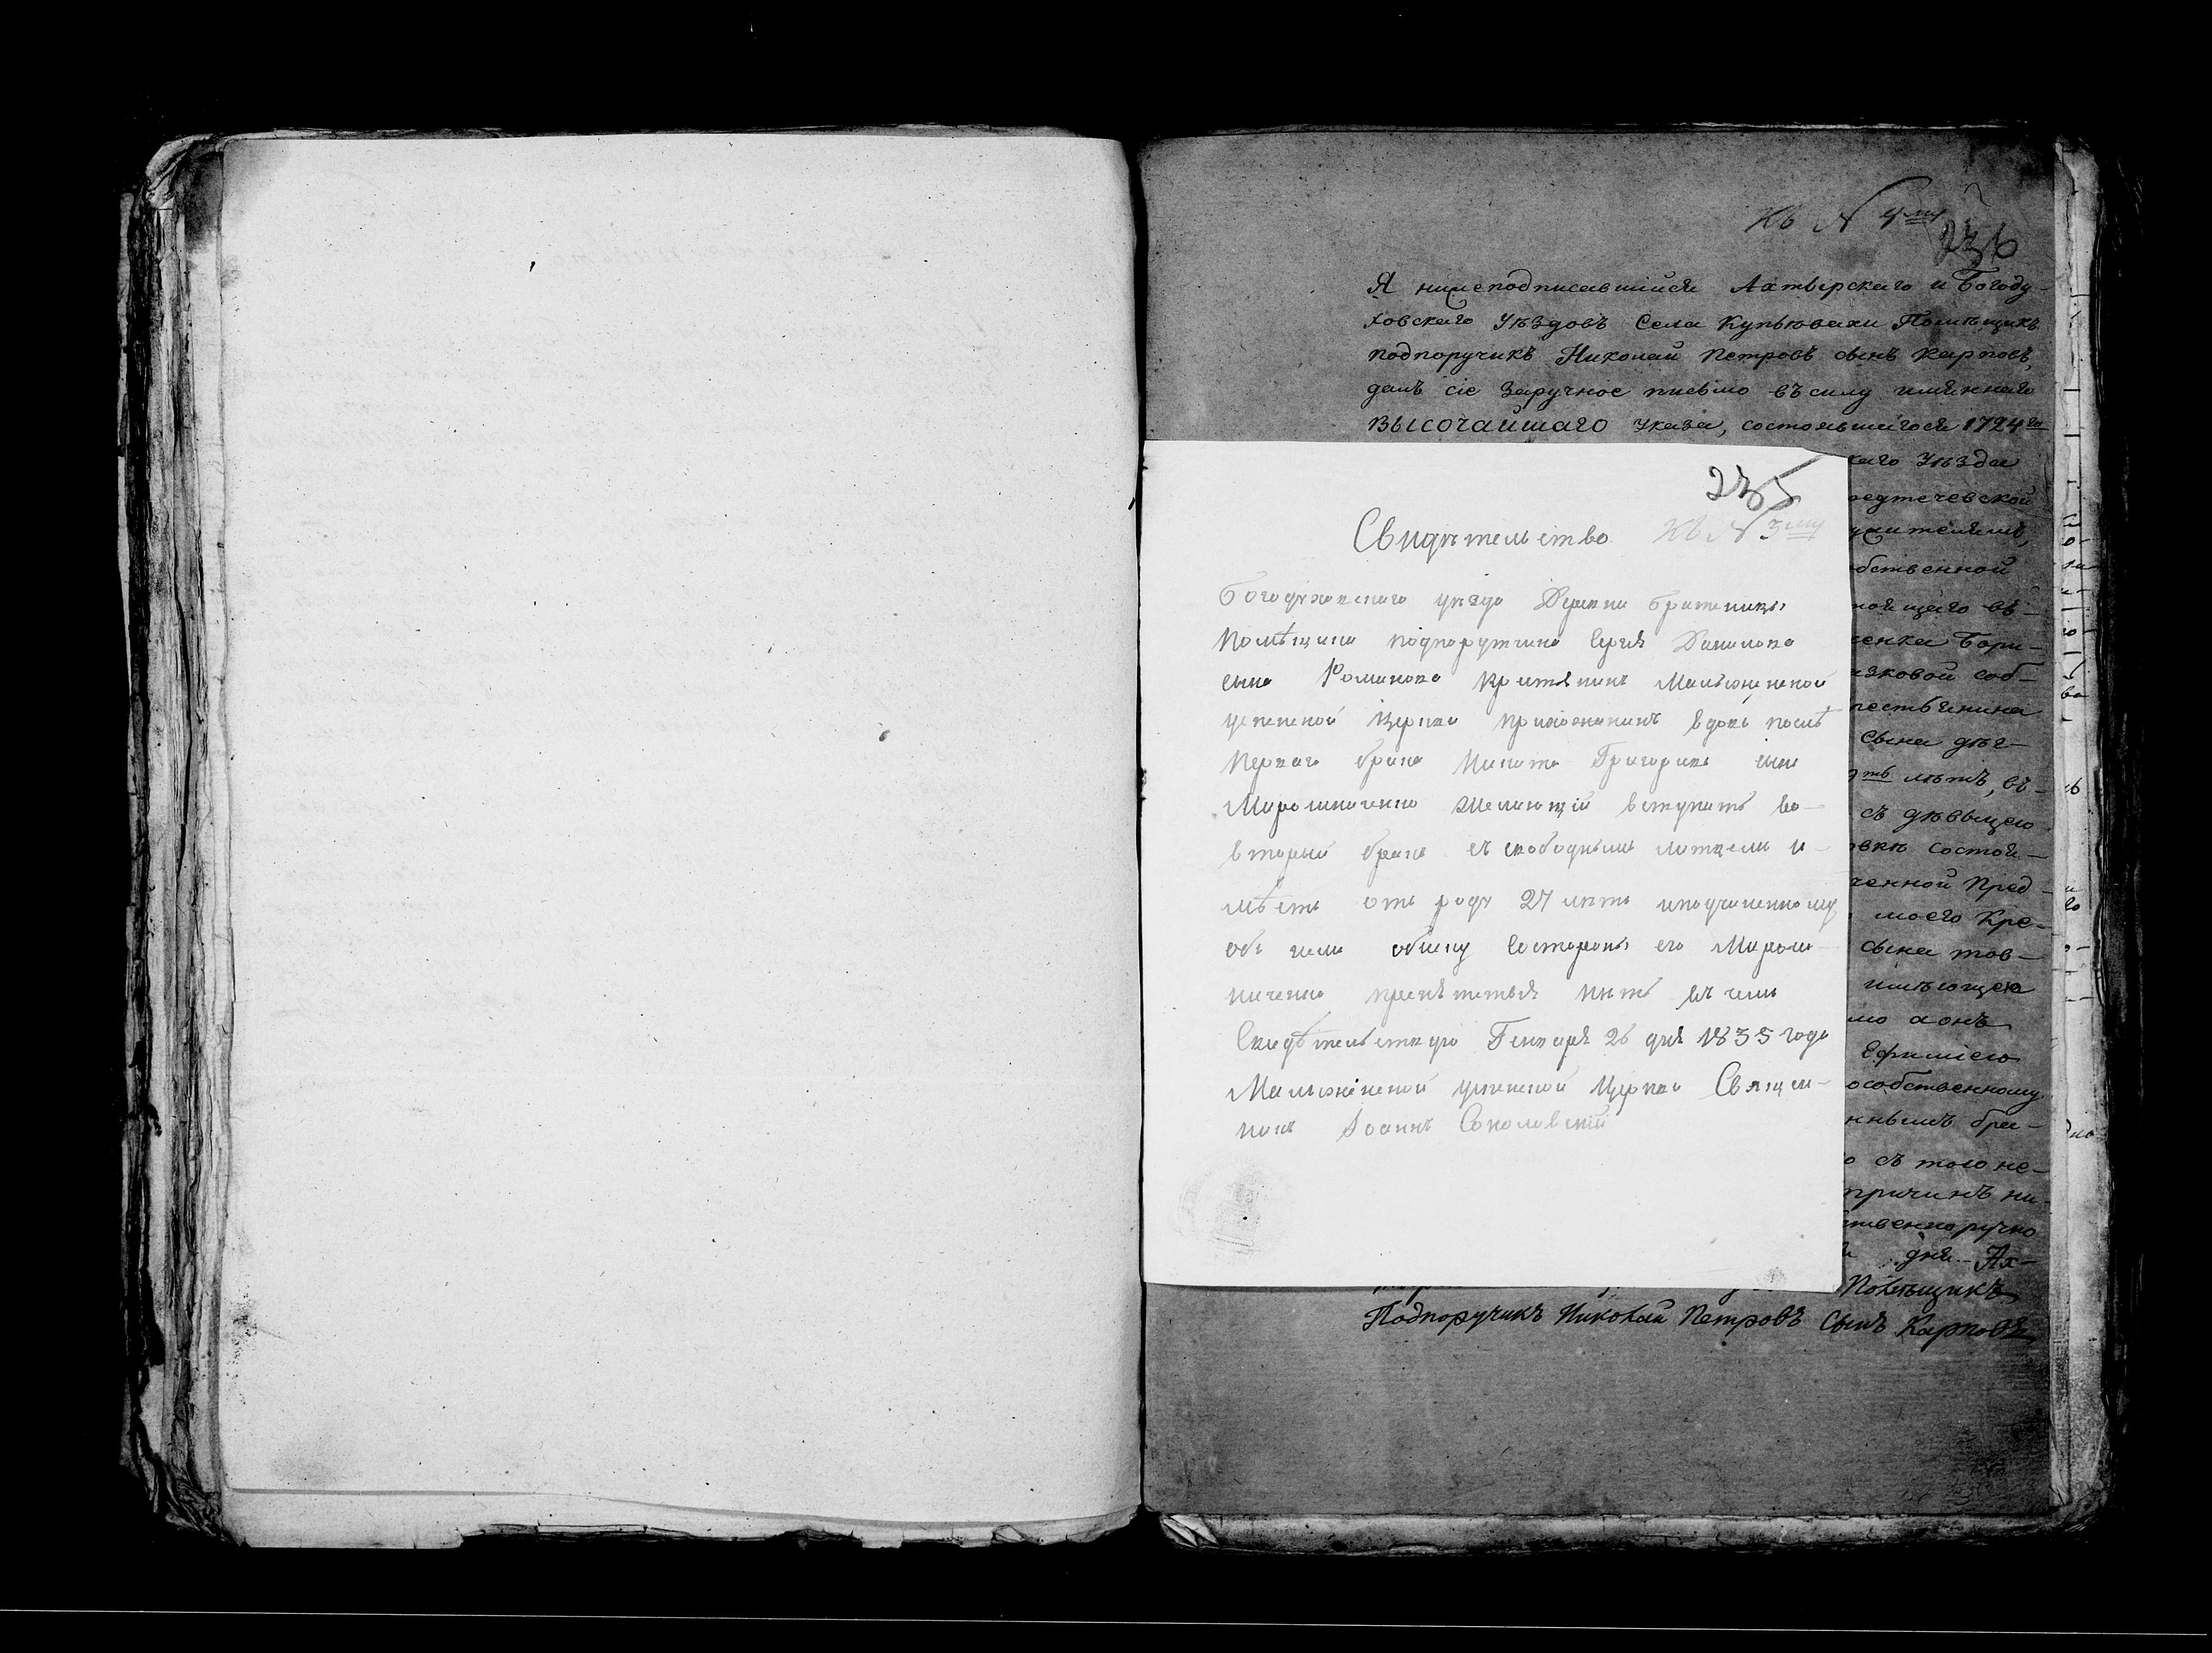 Къ N 4му
236
Я нижеподписавшийся Ахтырскаго и Богоду-
ховскаго Уѣздовъ Села Купьевахи Помѣщикъ
подпоручикъ Николай Петровъ сынъ Карповъ,
далъ сіе заручное письмо въ силу имяннаго
Высочайшаго указа, состоявшагося 1724го
каго Уѣзда
редтечевской
обственной
енка Бори-
яковой соб-
сына дѣт-
ть лѣтъ, въ-
съ дѣвицею
вкѣ состоя-
ченной пред-
моего Кре-
сына тов-
имѣющея
мо а онъ
Ефиміею
особственному
ннымъ бра-
о съ того не-
причинъ ни-
твенноручно
дня Ах-
Помѣщикъ
Подпоручикъ Николай Петровъ Сынъ Карповъ
235
Свидѣтельство Къ N 3му
Богодуховскаго уѣзда Деревни братеницы
Помѣщика подпорутчика Сергѣя Данилова
сына Романова крѣстянинъ Малыжинской
успенской Церкви прихожанинъ вдовъ послѣ
Перваго брака Никита Григорьевъ сынъ
Мирошниченко Желающій вступить во-
вторый бракъ съ свободнымъ лицемъ и-
мѣетъ отъ роду 27 лѣтъ иподчиненному
объ немъ обыску Состороны его Мирош-
ниченка препятствія нѣтъ въ чемъ
Свидѣтельствую Генваря 26 дня 1835 года
Малыжинской успенской Церкви Священ-
никъ Іоаннъ Соколовскій